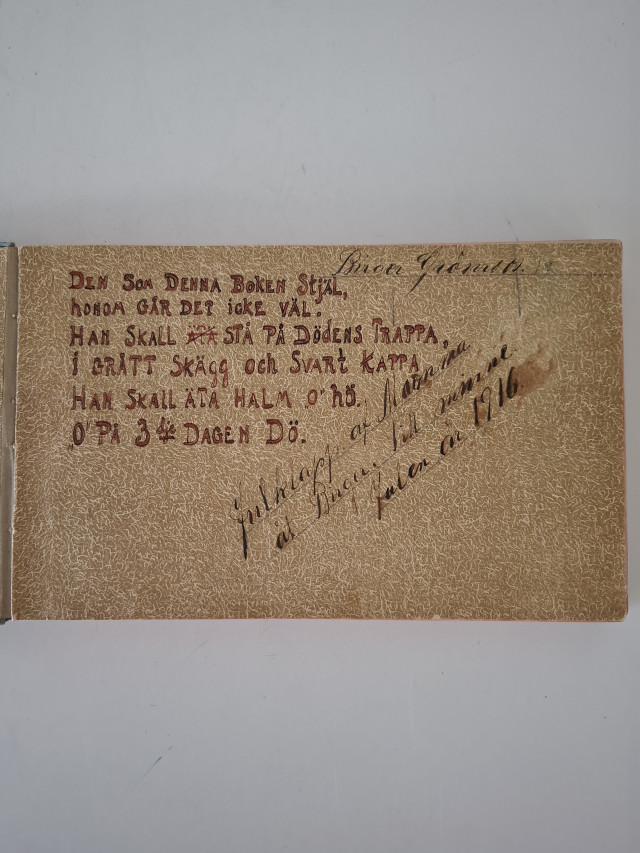 Birger Grönvall
Den Som Denna Boken Stjäl,
honom går det icke väl.
Han skall äta stå på Dödens Trappa,
i grått skägg och Svart Kappa
Han skall äta halm o' hö.
O' på 3dje dagen Dö.
Julklapp af Mamma
åt Birger, till minne
Julen år 1916.